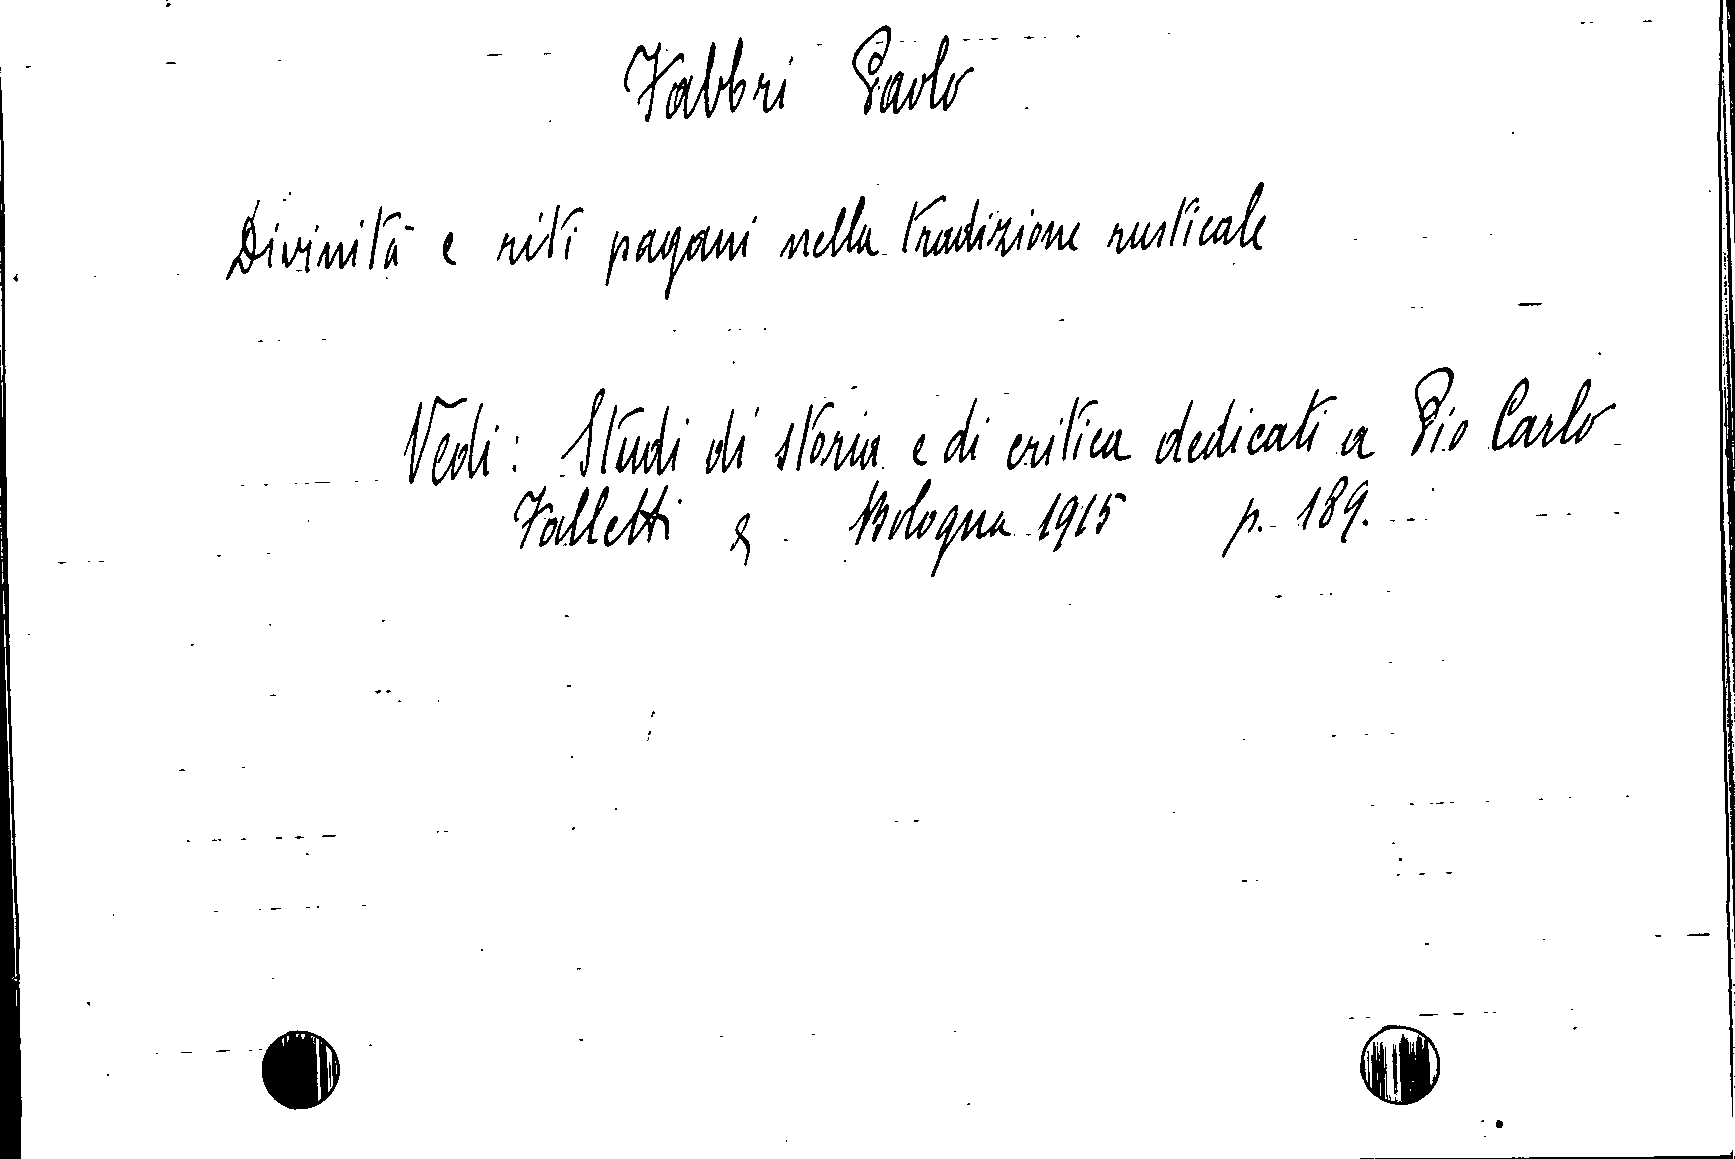 Fabbri Paolo
Divinità e riti pagani nella tradizione rusticale
Vedi: Studi di storia e di critica dedicati a Pio Carlo
Falletti & Bologna 1915 p. 189.